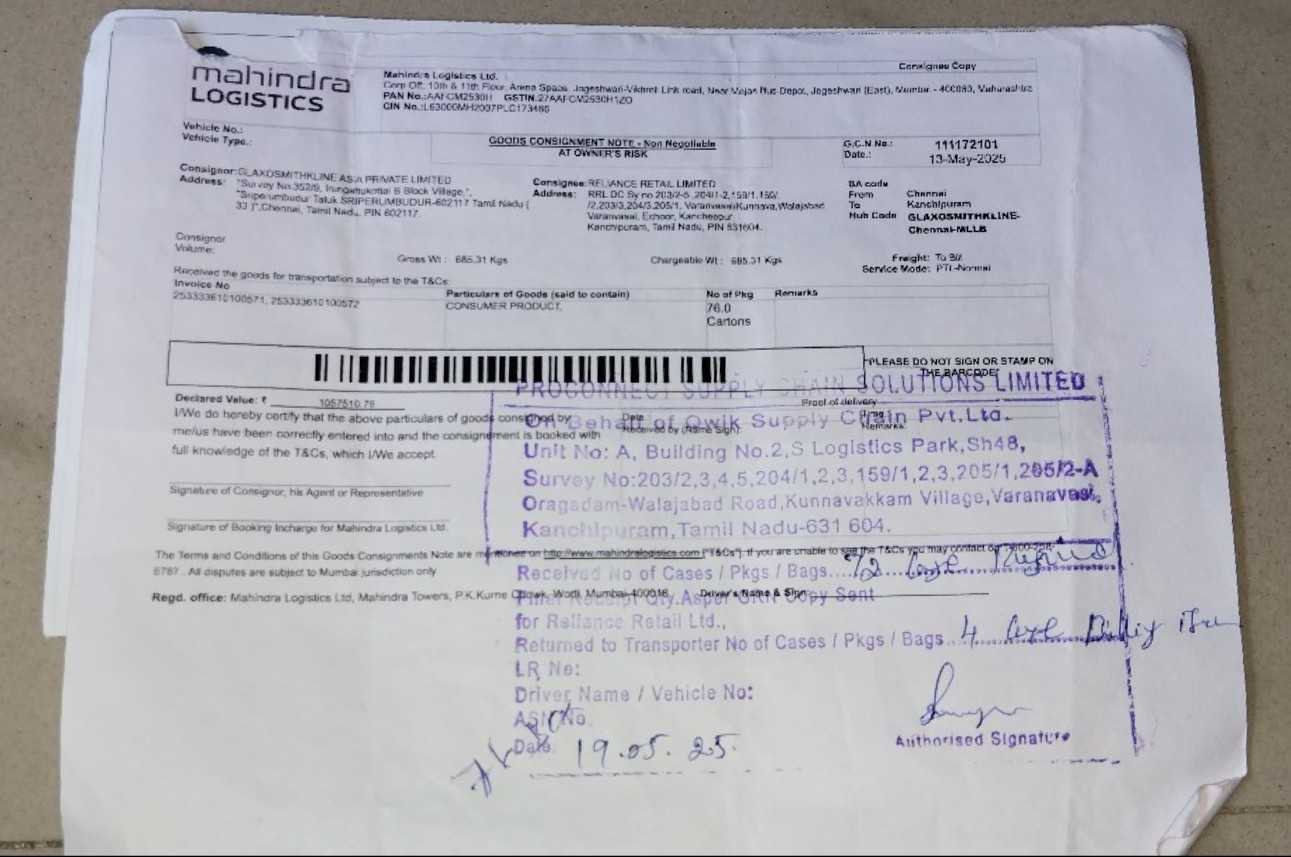 Consignee Copy
mahindra
LOGISTICS
Mahindra Logistics Ltd.
Corp Off: 10th & 11th Floor, Arena Space, Jogeshwari-Vikhroli Link road, Near Majas Bus Depot, Jogeshwari (East), Mumbai - 400060, Maharashtra
PAN No.:AAFCM2530H GSTIN:27AAFCM2530H1ZO
CIN No.:L63000MH2007PLC173466
Vehicle No.:
Vehicle Type.:
GOODS CONSIGNMENT NOTE - Non Negotiable
AT OWNER'S RISK
G.C.N No.: 111172101
Date.: 13-May-2025
Consignor:GLAXOSMITHKLINE ASIA PRIVATE LIMITED
Address: "Survey No.352/9, Irungattukottai B Block Village,",
"Sriperumbudur Taluk SRIPERUMBUDUR-602117 Tamil Nadu (
33 )",Chennai, Tamil Nadu, PIN 602117.
Consignee:RELIANCE RETAIL LIMITED
Address: RRL DC Sy no 203/2-5 ,204/1-2,159/1,159/
/2,203/3,204/3,205/1, Varanvasi/Kunnava,Walajabad
Varanvasi, Echoor, Kancheepur
Kanchipuram, Tamil Nadu, PIN 631604.
BA code
From Chennai
To Kanchipuram
Hub Code GLAXOSMITHKLINE-
Chennai-MLLB
Consignor
Volume:
Gross Wt : 685.31 Kgs
Chargeable Wt : 685.31 Kgs
Freight: To Bill
Service Mode: PTL-Normal
Received the goods for transportation subject to the T&Cs:
Invoice No Particulars of Goods (said to contain) No of Pkg Remarks
253333610100571, 253333610100572 CONSUMER PRODUCT, 76.0
Cartons
*PLEASE DO NOT SIGN OR STAMP ON
THE BARCODE*
Declared Value: ₹ 1057510.79
I/We do hereby certify that the above particulars of goods consigned by
me/us have been correctly entered into and the consignment is booked with
full knowledge of the T&Cs, which I/We accept
Signature of Consignor, his Agent or Representative
Signature of Booking Incharge for Mahindra Logistics Ltd.
Proof of delivery
Date
Received by (Name Sign):
Time
Remarks:
The Terms and Conditions of this Goods Consignments Note are mentioned on http://www.mahindralogistics.com ("T&Cs"). If you are unable to see the T&Cs you may contact on
6767 . All disputes are subject to Mumbai jurisdiction only
Regd. office: Mahindra Logistics Ltd, Mahindra Towers, P.K.Kurne Chowk, Worli, Mumbai-400018
Driver's Name & Sign:
PROCONNECT SUPPLY CHAIN SOLUTIONS LIMITED
On Behalf of Qwik Supply Chain Pvt.Ltd.
Unit No: A, Building No.2,S Logistics Park,Sh48,
Survey No:203/2,3,4,5,204/1,2,3,159/1,2,3,205/1,205/2-A
Oragadam-Walajabad Road,Kunnavakkam Village,Varanavasi,
Kanchipuram,Tamil Nadu-631 604.
Received No of Cases / Pkgs / Bags....72
Final Receipt Qty.Asper GRN Copy Sent
for Reliance Retail Ltd.,
Returned to Transporter No of Cases / Pkgs / Bags..4
LR No:
Driver Name / Vehicle No:
ASN No.
Date: 19.05.25.
Authorised Signature